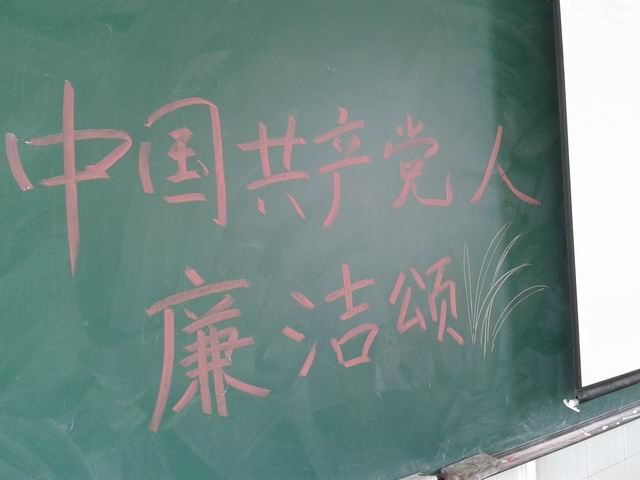 中国共产党人
廉洁颂